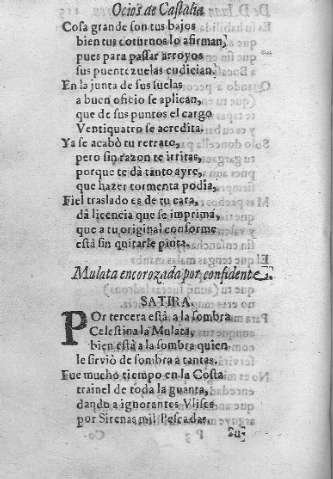 Ocios de Castalia
Cosa grande son tus bajos
bien tus coturnos lo afirman,
pues para passar arroyos
sus puentezuelas cudician.
En la junta de sus suelas
a buen oficio se aplican,
que de sus puntos el cargo
Ventiquatro se acredita.
Ya se acabò tu retrato,
pero sin razon te irritas,
porque te dà tanto ayre,
que hazer tormenta podia,
Fiel traslado es de tu cara,
dà licencia que se imprima,
que a tu original conforme
està sin quitarle pinta.
Mulata encorozada por confidente.
SATIRA.
POr tercera està a la sombra
Celestina la Mulata,
bien està a la sombra quien
le sirviò de sombra a tantas.
Fue mucho tiempo en la Costa
trainel de toda la guanta,
dando a ignorantes Vlises
por Sirenas mil Pescadas.